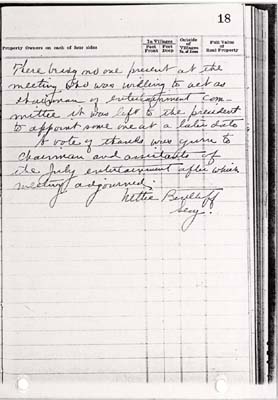 18
Property Owners on each of four sides
In Villages
Feet Front
Feet Deep
Outside of Villages
Full Value of Real Property
There being no one present at the
meeting who was willing to act as
chairman of entertainment com-
mittee it was left to the president
to appoint some one at a later date
A vote of thanks was given to
chairman and assistants of
the July entertainment after which
meeting adjourned.
Nettie
Secy.